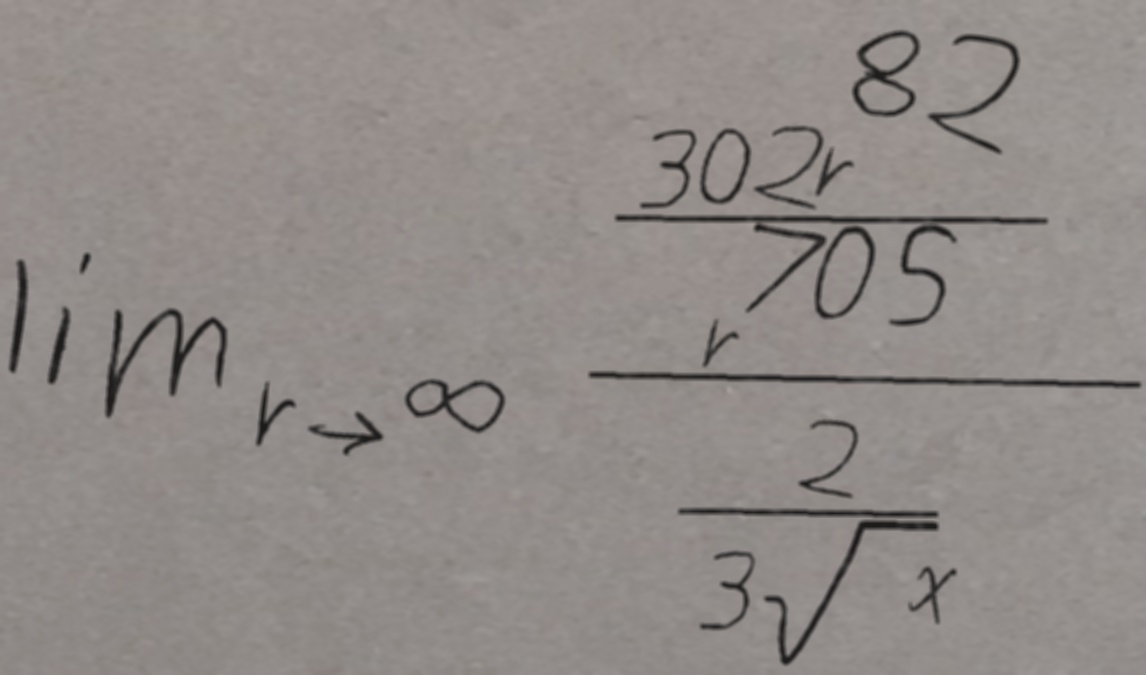 lim_{r→∞} \frac{\frac{302r^{82}}{r^{705}}}{\frac{2}{3\sqrt{x}}}